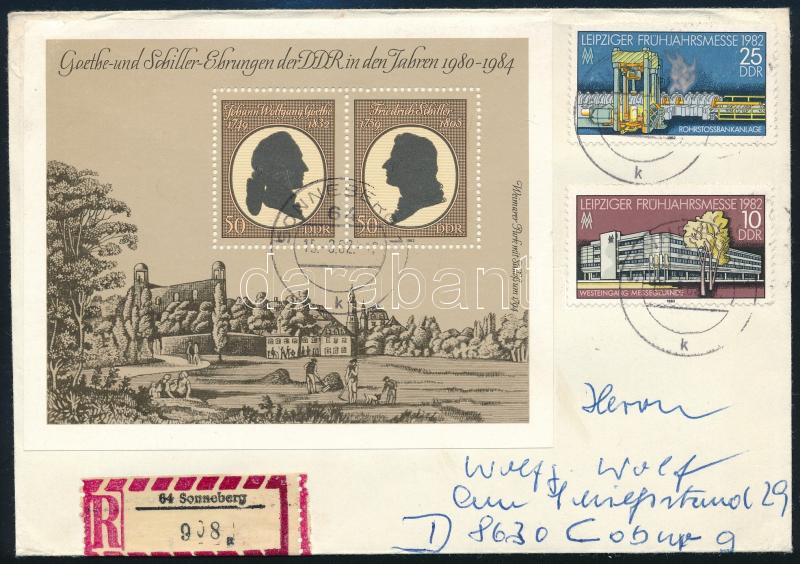 Goethe-und Schiller-Ehrungen der DDR in den Jahren 1980-1984
Johann Wolfgang Goethe
1749 1832
50 DDR
Friedrich Schiller
1759 1805
50 DDR
1982
Weimarer Park mit Schloß um 1805
SONNEBERG 1
64
k
LEIPZIGER FRÜHJAHRSMESSE 1982
25
DDR
ROHRSTOSSBANKANLAGE
1982
k
LEIPZIGER FRÜHJAHRSMESSE 1982
10
DDR
WESTEINGANG MESSEGELÄNDE
1982
k
darabanth
Herrn
Wolfg. Wolf
29
D 8630 Coburg
R
64 Sonneberg
908